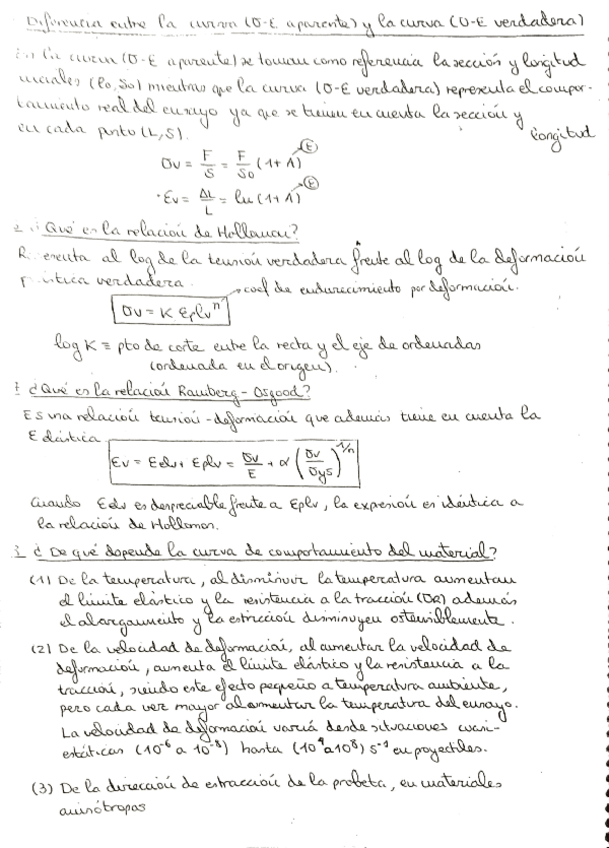 Diferencia entre la curva (σ-ε aparente) y la curva (σ-ε verdadera)
En la curva (σ-ε aparente) se toman como referencia la sección y longitud
iniciales (lo, So) mientras que la curva (σ-ε verdadera) representa el compor-
tamiento real del ensayo ya que se tienen en cuenta la sección y
en cada punto (L, S). longitud
σv = F/S = F/So (1+λ) → ε
·εv = ΔL/L = ln(1+λ) → ε
2 ¿Qué es la relación de Holloman?
R eventa al log de la tensión verdadera frente al log de la deformación
plástica verdadera.
→ coef de endurecimiento por deformación.
σv = K εplv^n
log K ≡ pto de corte entre la recta y el eje de ordenadas
(ordenada en el origen).
¿Qué es la relación Ramberg-Osgood?
Es una relación tensión-deformación que además tiene en cuenta la
E elástica
εv = εelv + εplv = σv/E + α (σv/σys)^1/n
Cuando εelv es despreciable frente a εplv, la expresión es idéntica a
la relación de Holloman.
3 ¿De qué depende la curva de comportamiento del material?
(1) De la temperatura, al disminuir la temperatura aumentan
el límite elástico y la resistencia a la tracción además
el alargamiento y la estricción disminuyen ostensiblemente.
(2) De la velocidad de deformación, al aumentar la velocidad de
deformación, aumenta el límite elástico y la resistencia a la
tracción, siendo este efecto pequeño a temperatura ambiente,
pero cada vez mayor al aumentar la temperatura del ensayo.
La velocidad de deformación varía desde situaciones cuasi-
estáticas (10^-6 a 10^-8) hasta (10^4 a 10^8) s^-1 en proyectiles.
(3) De la dirección de extracción de la probeta, en materiales
anisótropos